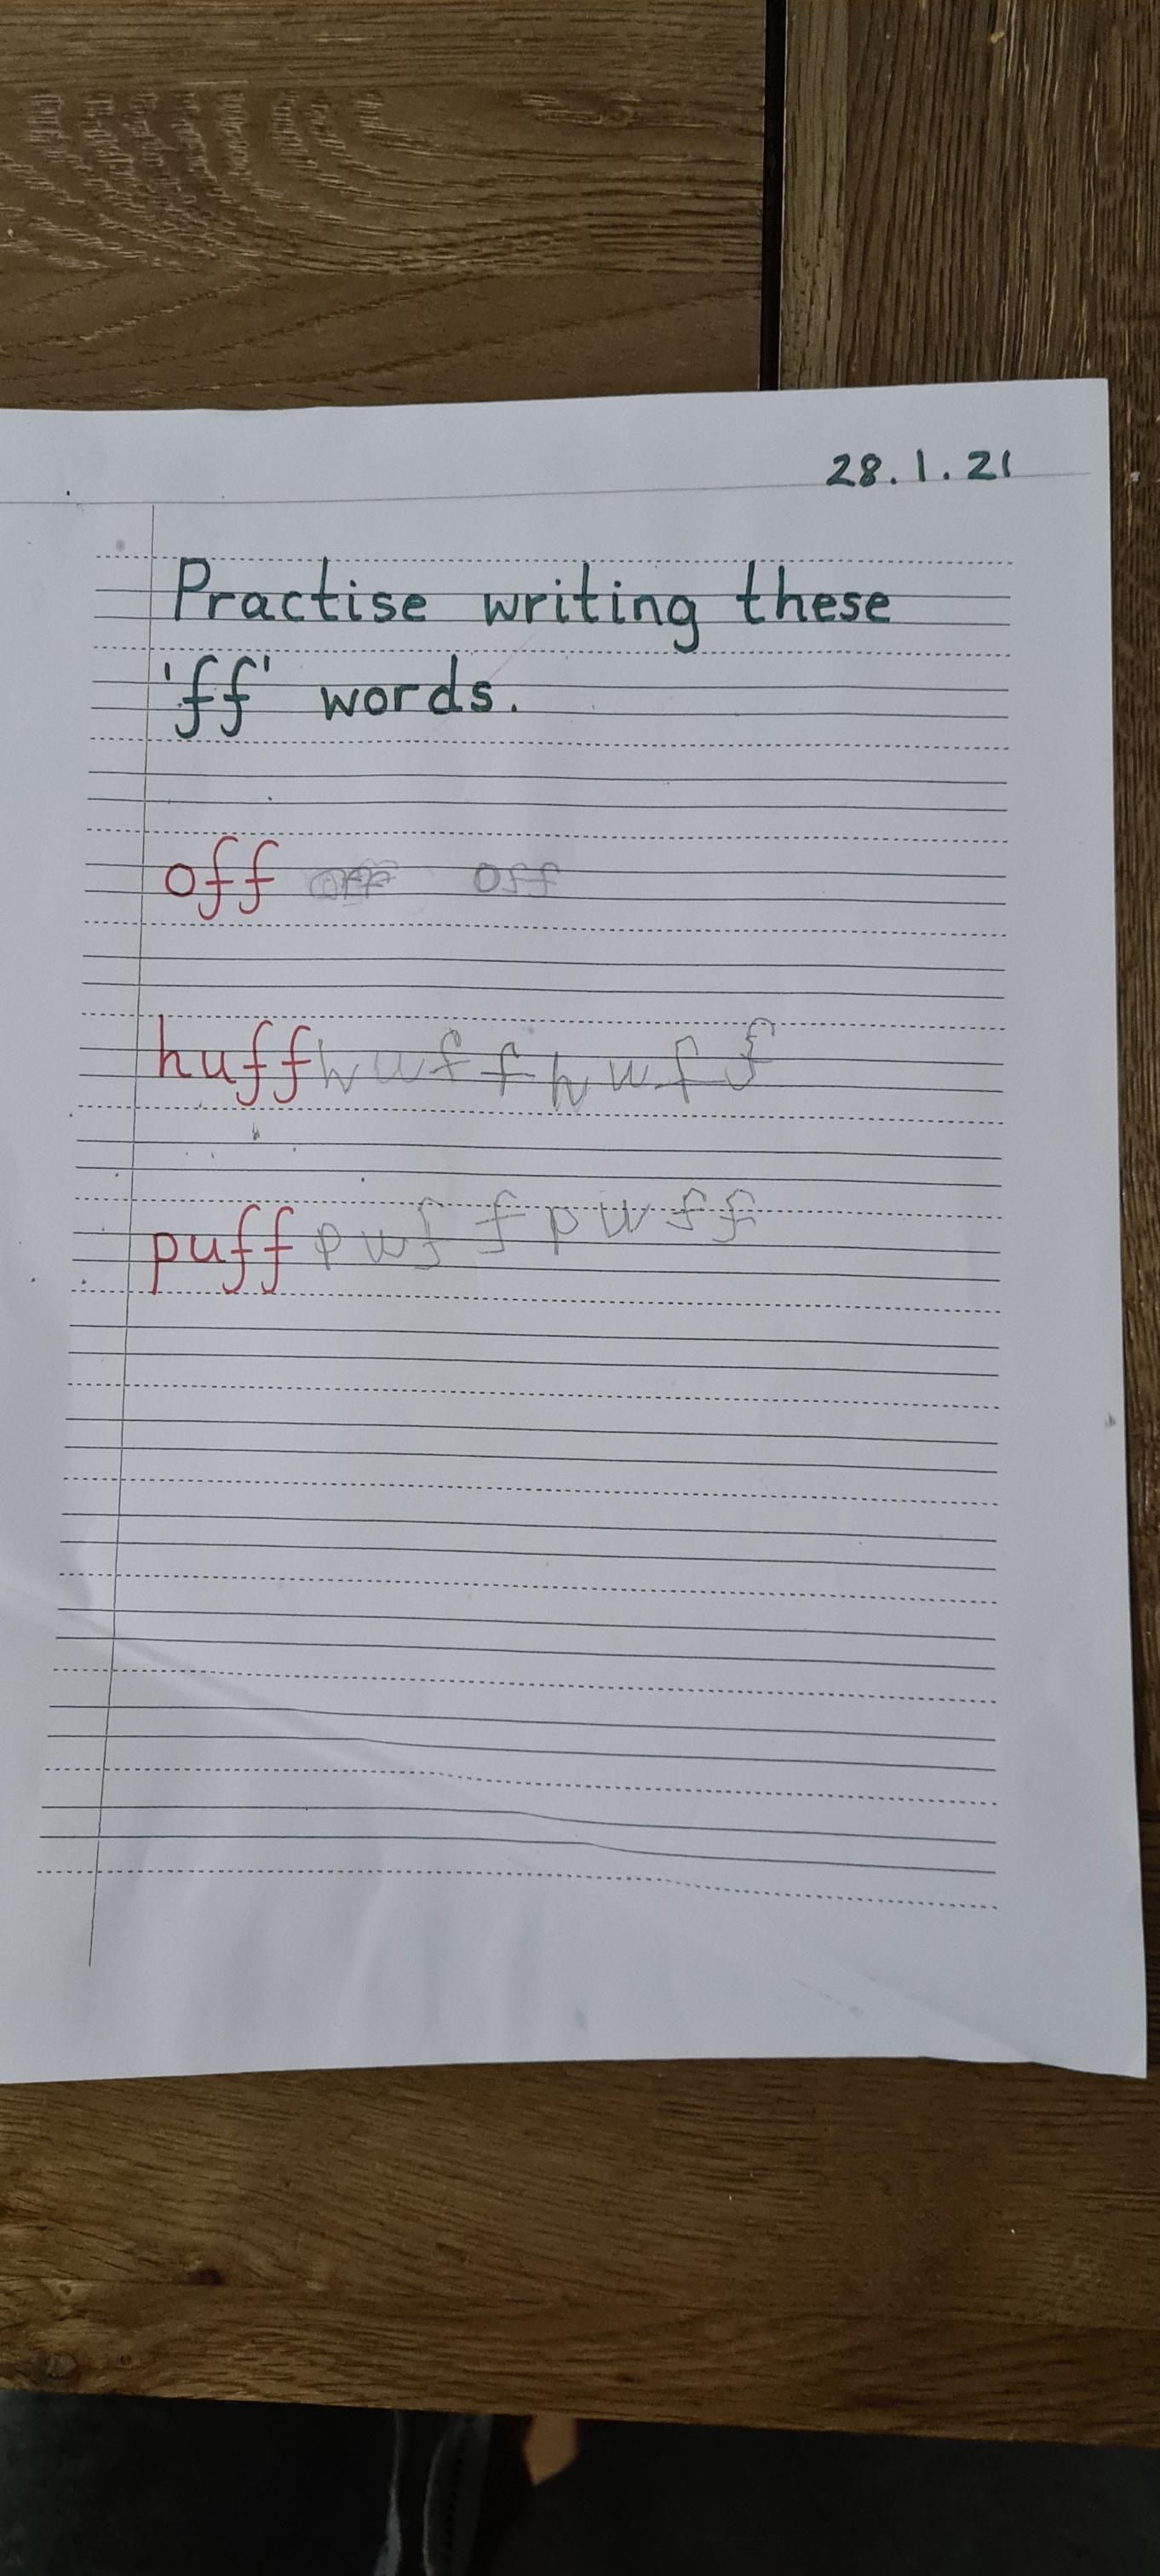 28.1.21
Practise writing these
'ff' words.
off off off
huff hwff hwff
puff pwff pwff